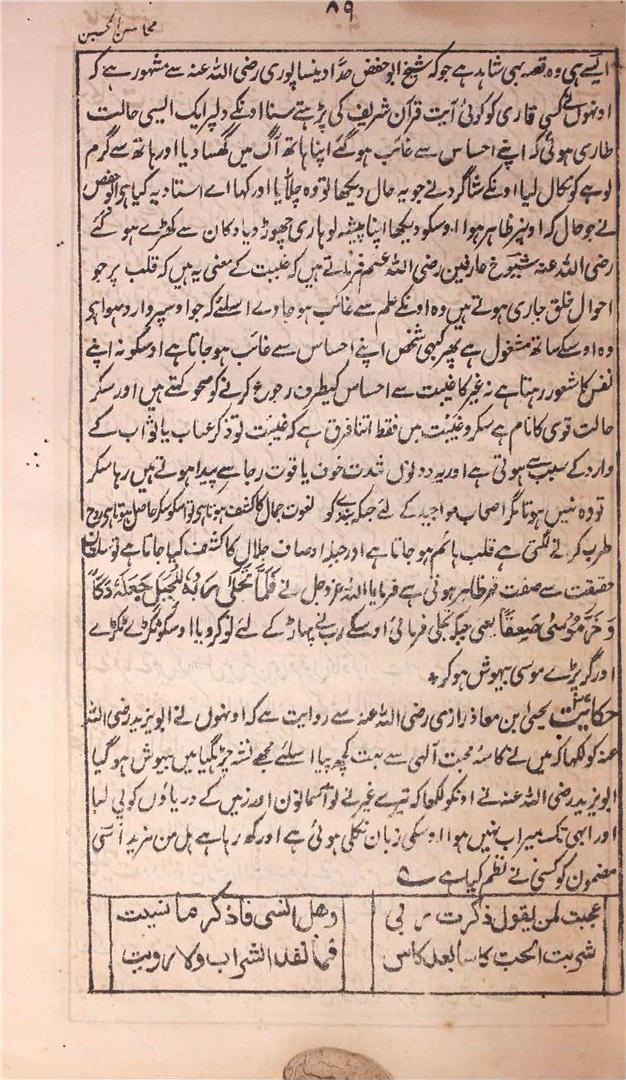 ۸۹
محاسن الحسین
ایسے ہی وہ قصہ بھی شاہد ہے جو کہ شیخ ابو حفص حداد نیساپوری رضی اللہ عنہ سے مشہور ہے کہ
اونہوں نے کسی قاری کو کوئی آیت قرآن شریف کی پڑہتے سنا اونکے دلپر ایک ایسی حالت
طاری ہوئی کہ اپنے احساس سے غائب ہو گئے اپنا ہاتھ آگ میں گھسا دیا اور ہاتھ سے گرم
لوہے کو نکال لیا اونکے شاگرد نے جو یہ حال دیکھا تو وہ چلّایا اور کہا اے استاد یہ کیا ہی ابو حفص
نے جو حال کہ اونپر ظاہر ہوا اوسکو دیکھا اپنا پیشہ لوہاری چھوڑ دیا دکان سے کھڑے ہو گئے
رضی اللہ عنہ شیوخ عارفین رضی اللہ عنہم فرماتے ہیں کہ غیبت کے معنی یہ ہیں کہ قلب پر جو
احوال خلق جاری ہوتے ہیں وہ اونکے علم سے غائب ہو جاوے اسلئے کہ جو اوسپر وارد ہوا ہی
وہ اوسکے ساتھ مشغول ہے پھر کبھی شخص اپنے احساس سے غائب ہو جاتا ہے اوسکو نہ اپنے
نفس کا شعور رہتا ہے نہ غیر کا غیبت سے احساس کیطرف رجوع کرنے کو صحو کہتے ہیں اور سکر
حالت قوی کا نام ہے سکر و غیبت میں فقط اتنا فرق ہے کہ غیبت تو ذکر عذاب یا ثواب کے
وارد کے سبب سے ہوتی ہے اور یہ دونوں شدت خوف یا قوت رجا سے پیدا ہوتے ہیں رہا سکر
تو وہ نہیں ہوتا مگر اصحاب مواجید کے لئے جبکہ بندے کو نعوت جمال کا کشف ہوتا ہی تو اسکو سکر حاصل ہوتا ہی روح
طرب کرنے لگتی ہے قلب ہائم ہو جاتا ہے اور جبکہ اوصاف جلال کا کشف کیا جاتا ہے تو سلطان
حقیقت سے صفت قہر ظاہر ہوتی ہے فرمایا اللہ عزوجل نے فَلَمَّا تَجَلّٰی رَبُّہٗ لِلْجَبَلِ جَعَلَہٗ دَکًّا
وَّ خَرَّ مُوْسٰی صَعِقًا یعنی جبکہ تجلی فرمائی اوسکے رب نے پہاڑ کے لئے تو کر دیا اوسکو ٹکڑے ٹکڑے
اور گر پڑے موسی بیہوش ہو کر
حکایت یحیی ابن معاذ رازی رضی اللہ عنہ سے روایت ہے کہ اونہوں نے ابو یزید رضی اللہ
عنہ کو لکھا کہ میں نے کاسۂ محبت آلٰہی سے بہت کچھ پیا اسلئے مجھے نشہ چڑھگیا میں بیہوش ہو گیا
ابو یزید رضی اللہ عنہ نے اونکو لکھا کہ تیرے غیر نے تو آسمانون اور زمیں کے دریاؤں کو پی لیا
اور ابھی تک سیراب نہیں ہوا اوسکی زبان نکلی ہوئی ہے اور کہہ رہا ہے ہل من مزید اسی
مضمون کو کسی نے نظم کیا ہے
عجبت لمن یقول ذکرت ربی وھل انسی فاذکر ما نسیت
شربت الحب کاسا بعد کاس فما نفد الشراب ولا رویت